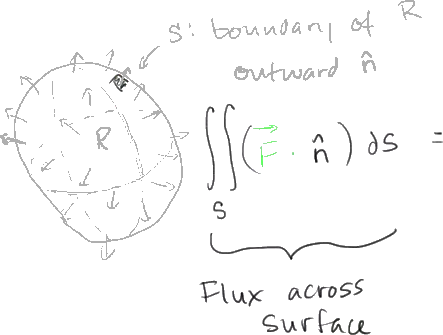 S: boundary of R
outward n̂
R
∬ (F⃗ · n̂) dS =
S
Flux across
surface